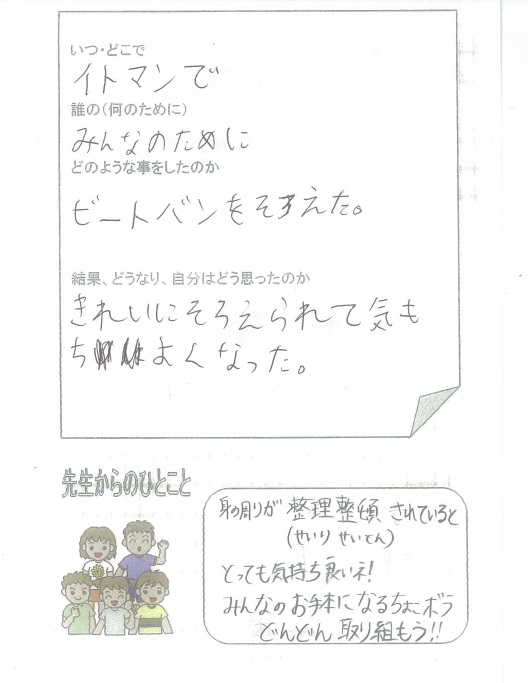 いつ・どこで
イトマンで
誰の(何のために)
みんなのために
どのような事をしたのか
ビートバンをそろえた。
結果、どうなり、自分はどう思ったのか
きれいにそろえられて気も
ちよくなった。
先生からのひとこと
身の周りが 整理整頓 されていると
(せいり せいとん)
とっても気持ち良いネ!
みんなのお手本になるちょこボラ
どんどん取り組もう!!